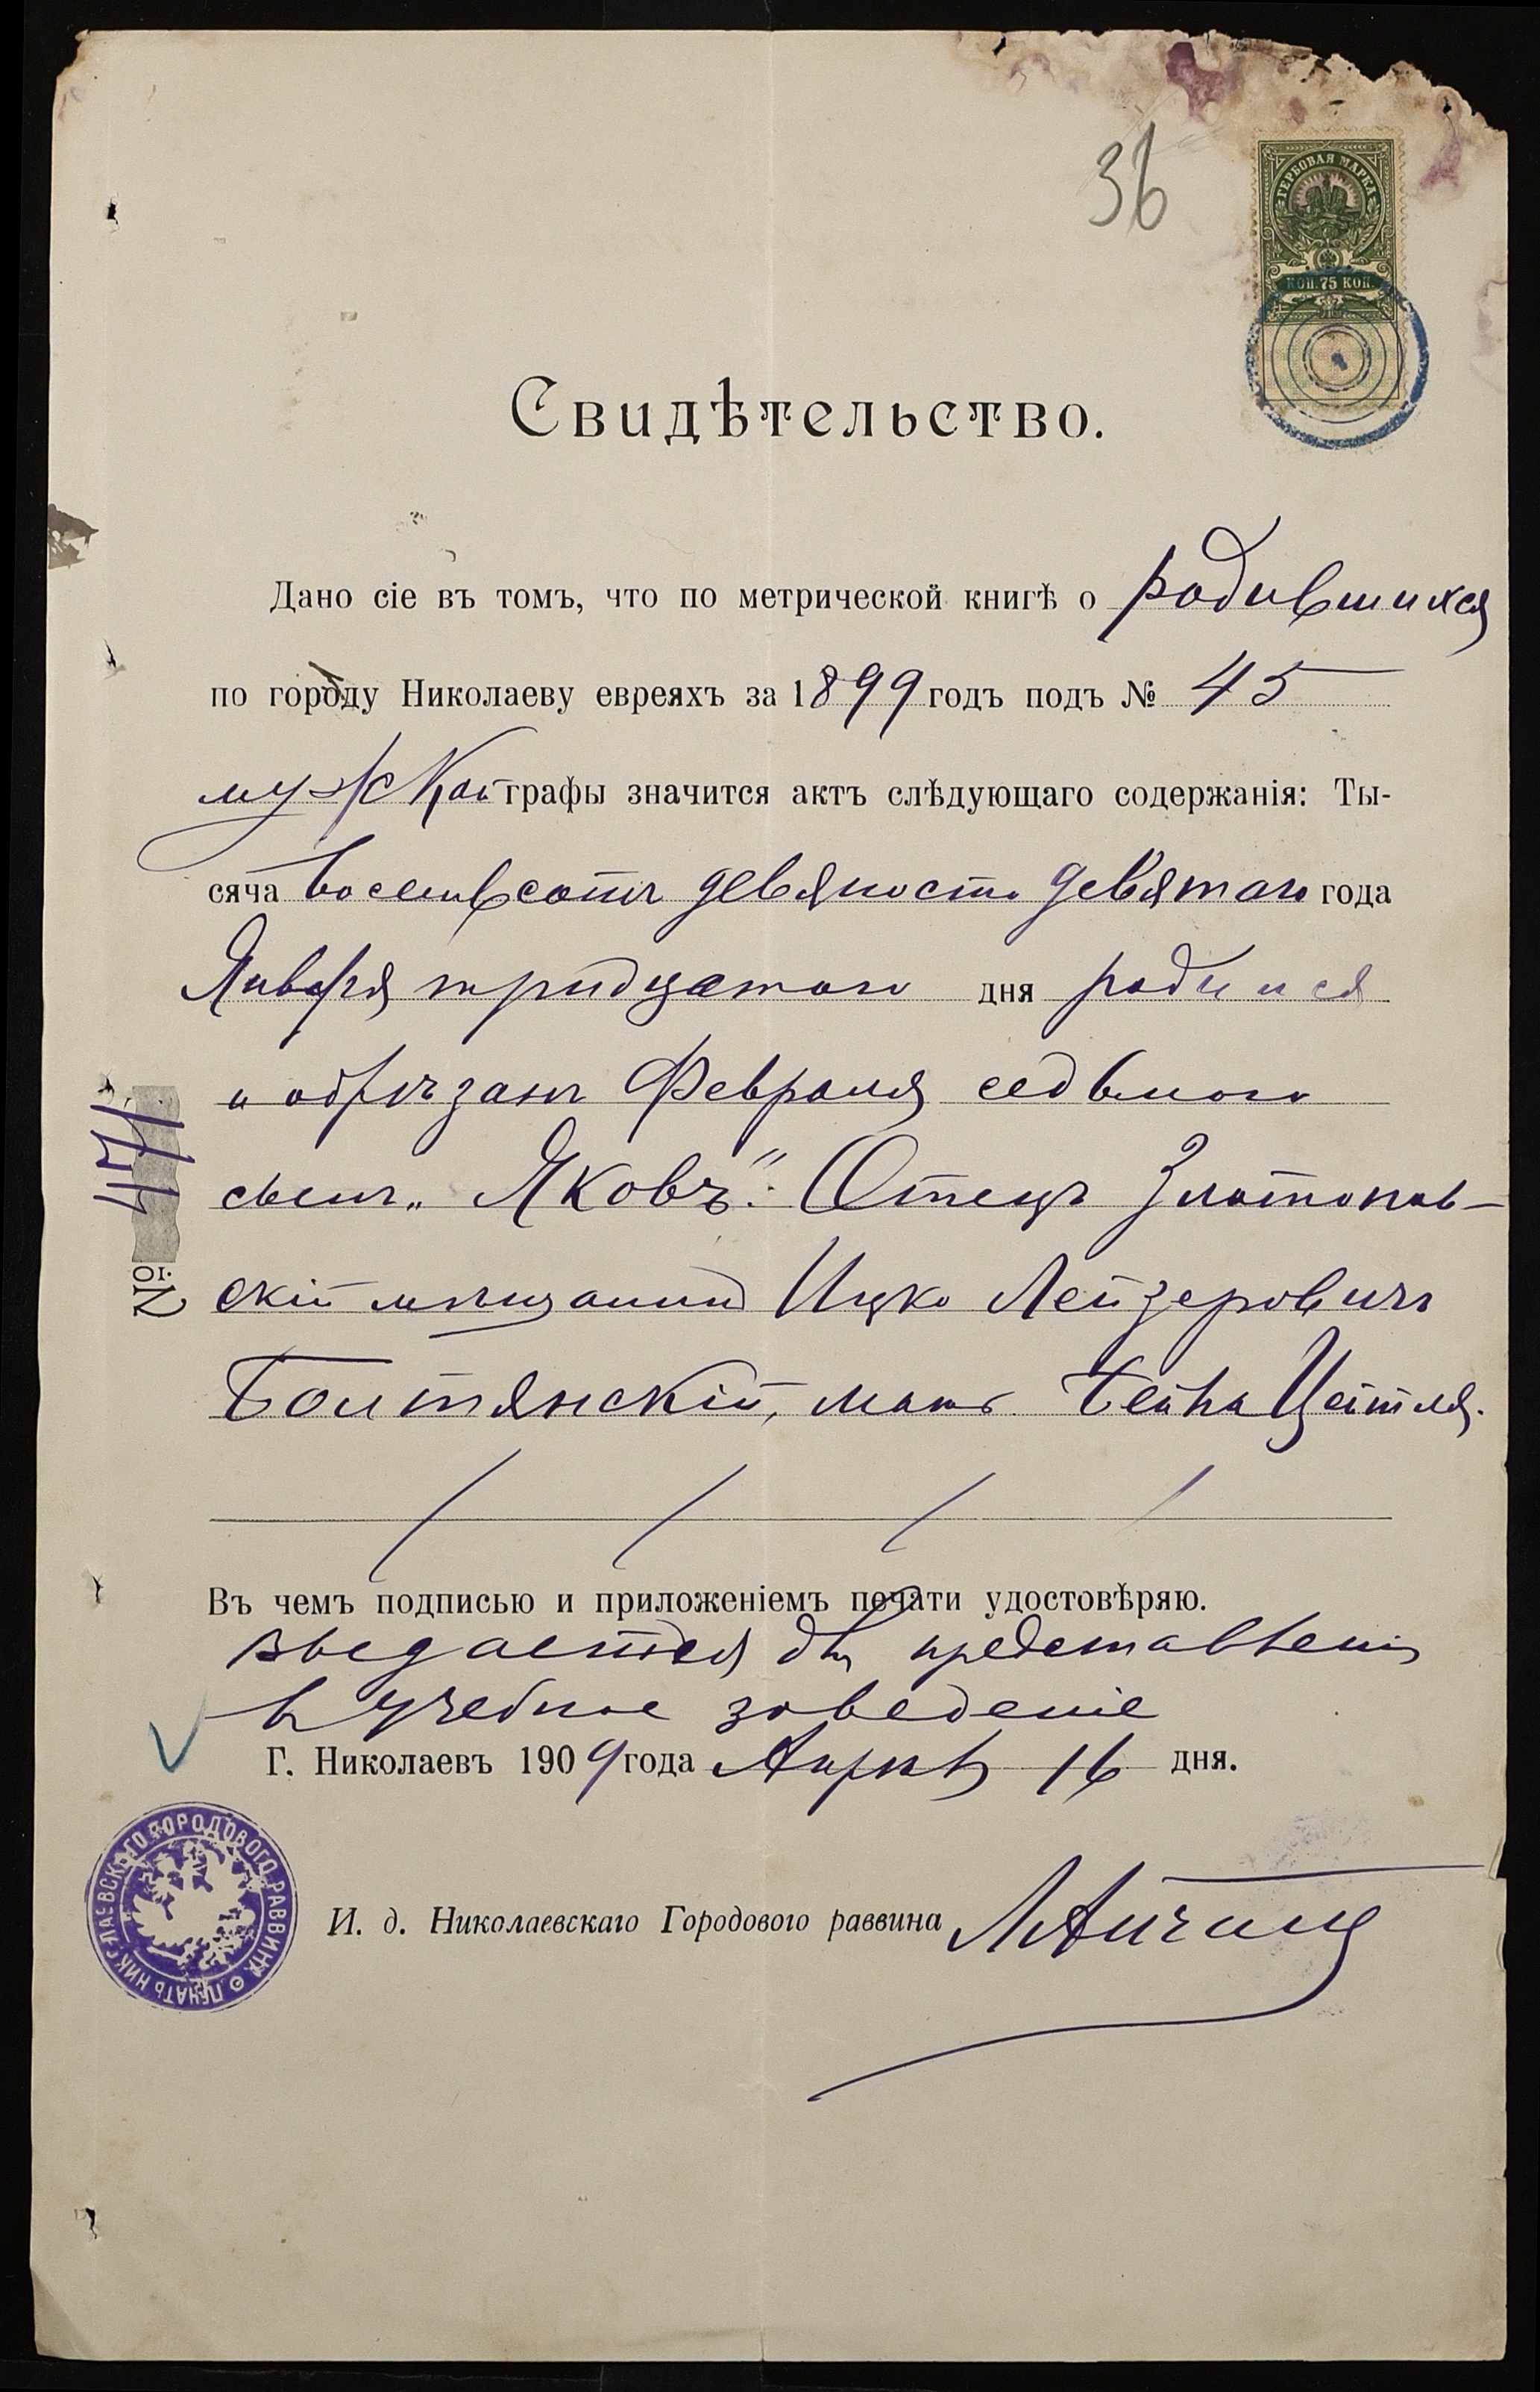 36
ГЕРБОВАЯ МАРКА
КОП. 75 КОП.
Свидѣтельство.
Дано сіе въ томъ, что по метрической книгѣ о родившихся
по городу Николаеву евреяхъ за 1899 годъ подъ № 45
мужской графы значится актъ слѣдующаго содержанія: Ты-
сяча восемьсотъ девяносто девятаго года
Января тридцатаго дня родился
и обрѣзанъ Февраля седьмого
сынъ „Яковъ“. Отецъ Златопов-
скій мѣщанинъ Ицко Лейзеровичъ
Болтянскій, мать Бейла Цейтля.
Въ чемъ подписью и приложеніемъ печати удостовѣряю.
выдается для представленія
въ учебное заведеніе
Г. Николаевъ 1909 года Апрѣля 16 дня.
И. д. Николаевскаго Городового раввина
№ 471
ПЕЧАТЬ НИКОЛАЕВСКАГО ГОРОДОВОГО РАВВИНА